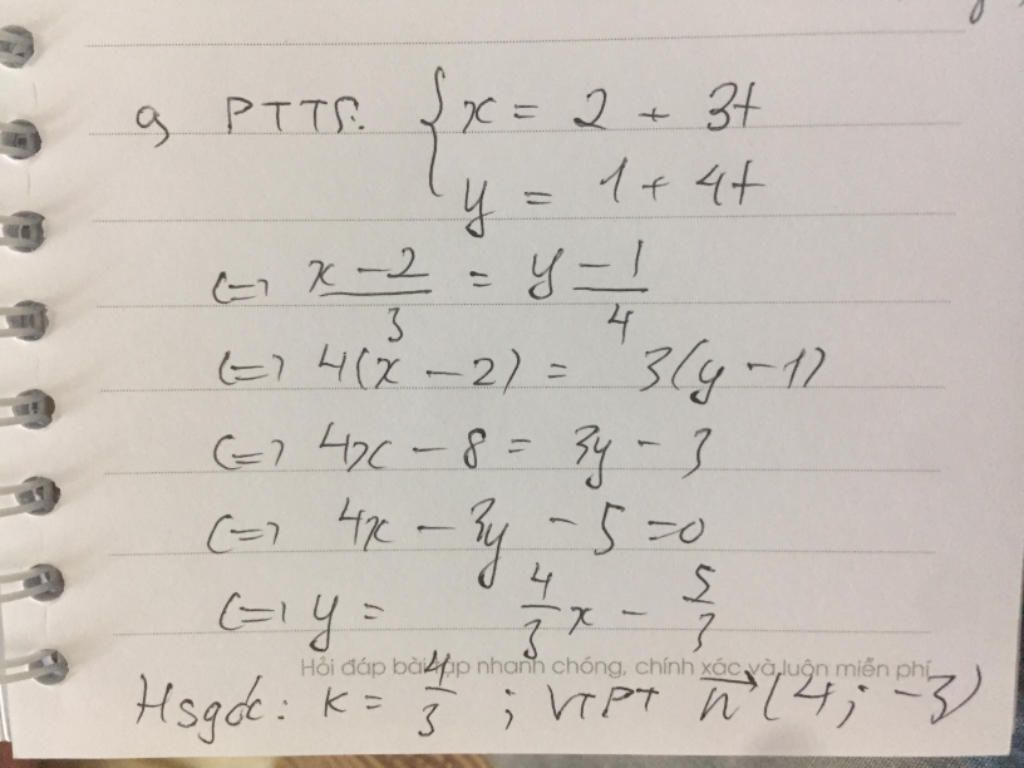 a, PTTS: { x = 2 + 3t
y = 1 + 4t
<=> x - 2 / 3 = y - 1 / 4
<=> 4(x - 2) = 3(y - 1)
<=> 4x - 8 = 3y - 3
<=> 4x - 3y - 5 = 0
<=> y = 4/3 x - 5/3
Hỏi đáp bài tập nhanh chóng, chính xác và luôn miễn phí
Hsgóc: K = 4/3 ; VTPT n→(4; -3)